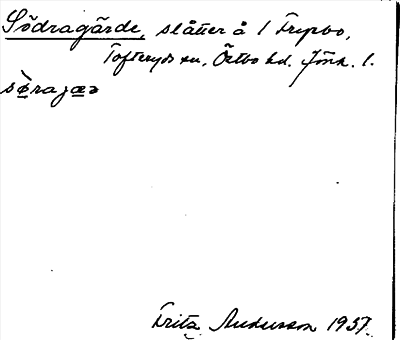 Södragärde, slåtter å 1 Frysbo,
Tofteryds sn, Östbo hd. Jönk. l.
sø̀rajæə
Fritz Andersson 1937.